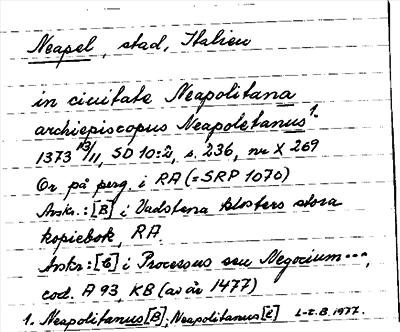 Neapel, stad, Italien
in ciuitate Neapolitana
archiepiscopus Neapoletanus 1.
1373 13/11, SD 10:2, s. 236, nr X 269
Or på perg. i RA (=SRP 1070)
Avskr.: [B] i Vadstena klosters stora
kopiebok, RA.
Avskr: [C] i Processus seu Negocium...,
cod. A 93, KB (av år 1477)
1. Neapolitanus [B]; Neapolitanus [C] L-E.B. 1977.